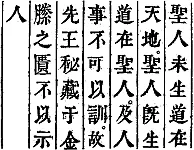 聖人未生道在
天地。聖人旣生
道在聖人。及人
事不可以訓。故
先王秘藏于金
縢之匱不以示
人